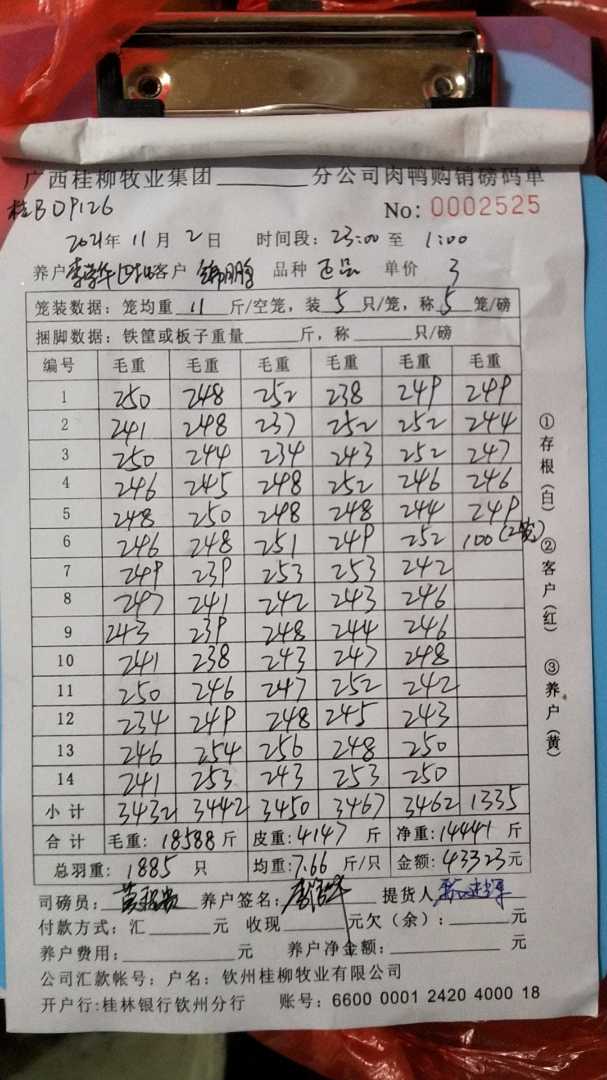 广西桂柳牧业集团________分公司肉鸭购销磅码单
桂BDP126 No: 0002525
2021年 11月 2日 时间段: 23:00 至 1:00
养户 客户 品种 正品 单价 3
笼装数据: 笼均重 11 斤/空笼, 装 5 只/笼, 称 5 笼/磅
捆脚数据: 铁筐或板子重量______斤, 称______只/磅
编号 毛重 毛重 毛重 毛重 毛重 毛重
1 250 248 252 238 249 249
2 241 248 237 252 252 244
3 250 244 234 243 252 247
4 246 245 248 252 246 246
5 248 250 248 248 244 249
6 246 248 251 249 252 100(2笼)
7 249 239 253 253 242
8 247 241 242 243 246
9 243 239 248 244 246
10 241 238 243 247 248
11 250 246 247 252 242
12 234 249 248 245 243
13 246 254 256 248 250
14 241 253 243 253 250
小计 3432 3442 3450 3467 3462 1335
合计 毛重: 18588 斤 皮重: 4147 斤 净重: 14441 斤
总羽重: 1885 只 均重: 7.66 斤/只 金额: 43323元
司磅员: 养户签名: 提货人
付款方式: 汇______元 收现______元欠(余): ______元
养户费用: ________元 养户净金额: ________元
公司汇款帐号: 户名: 钦州桂柳牧业有限公司
开户行:桂林银行钦州分行 账号: 6600 0001 2420 4000 18
①存根(白) ②客户(红) ③养户(黄)